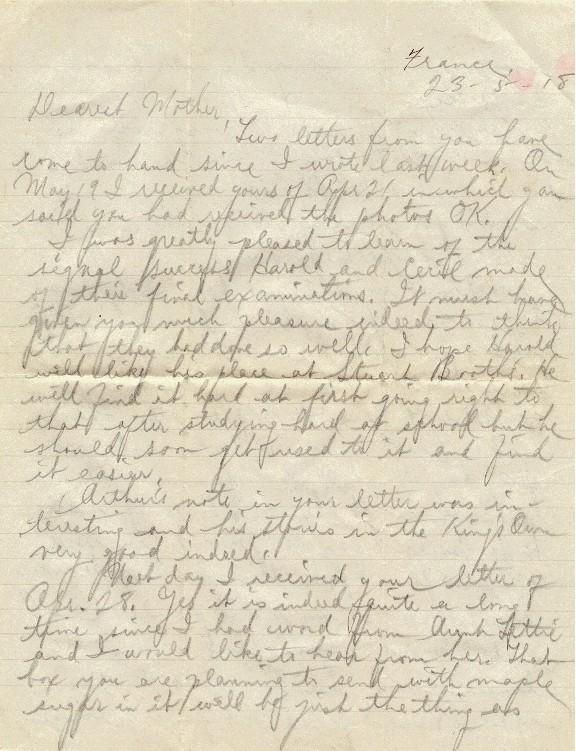 France,
23-5-18
Dearest Mother,
Two letters from you have
come to hand since I wrote last week. On
May 19 I received yours of Apr 21 in which you
said you had received the photos OK.
I was greatly pleased to learn of the
signal success Harold and Cecil made
of their final examinations. It must have
given you much pleasure indeed to think
that they had done so well. I hope Harold
will like his place at Stuart Booths. He
will find it hard at first going right to
that after studying hard at school but he
should soon get used to it and find
it easier.
Arthur's note in your letter was in-
teresting and his stories in the King's Own
very good indeed.
Next day I received your letter of
Apr. 28. Yes it is indeed quite a long
time since I had word from Aunt Lettie
and I would like to hear from her. That
box you are planning to send with maple
sugar in it will be just the thing as